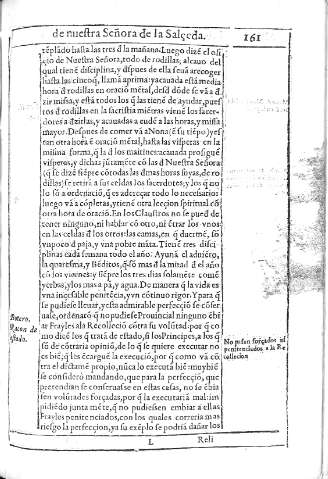 de nuestra Señora de la Salçeda. 161
tēplado hasta las tres đ la mañana. Luego dizē el ofi
cio de Nuestra Señora, todo de rodillas; al cauo del
qual tienē disciplina, y dspues de ella se uā a recoger
hasta las cinco q̄ llamā a prima: y acauada està media
hora đ rodillas en oració métal, desd dùde se và a đ
zir missa, y està todos los q̄ las tienē de ayudar, pues
tos đ rodillas en la sacristia mientras vienē los sacer
dotes a dzirlas, y acauadas acudē a las horas, y missa
mayor. Despues de comer và a Nona (ē su tiēpo) y es
tan otra hora ē oració métal, hasta las visperas en la
misma forma, q̄ la đ los maitines: acauada prosiguē
visperas, y dichas jútaméte cō las đ Nuestra Señora
(q̄ se dizē siēpre cō todas las dmas horas suyas, de ro
dillas) se retirā a sus celdas los sacerdotes; y los q̄ no
lo sō a ordenació, q̄ es adereçar todo lo necesario:
luego và a cōpletas, y tienē otra leccion spiritual cō
otra hora de oració. En los Claustros no se pued đ
tener ninguno, ni hablar cō otro, ni ētrar los vnos
en las celdas đ los otros: las camas, en q̄ duermē, sō
vn poco đ paja, y vna pobre māta. Tienē tres disci
plinas cada semana todo el año: Ayunā el aduiēto,
la quaresma, y Bēditos, q̄ sō mas đ la mitad đ el año
cō los viernes; y siēpre los tres dias solaméte comē
yerbas, y los mas a pā, y agua. De manera q̄ la vida es
vna incāsable penitēcia, y vn cótinuo rigor. Y para q̄
se pudiese lleuar, y esta admirable perfecció se cóser
uase, ordenaró q̄ no pudiese Prouincial ninguno ēbiar
Frayles a la Recolecció cótra su volútad; por q̄ co
mo dicē los q̄ tratà de estado, si los Principes, a los q̄
só de cótraria opinió, de lo q̄ se quiere executar no
es biē, q̄ les ēcargue la execució, por q̄ como và có
tra el dictamē propio, núca lo executà biē: muy biē
se consideró mandando, que para la perfecció, que
pretendian se conseruasse en estas casas, no se ēbia
sen volútades forçadas, por q̄ la executariā mal: im
pidiēdo junta méte, q̄ no pudiessen embiar a ellas
Frayles penitenciados, con los quales corrieria mas
riesgo la perfeccion, ya su exéplo se podriā dañar los
Botero.
Razon de
estado.
No pueden forçados ni
penitenciados a la Re
coleccion
L Reli